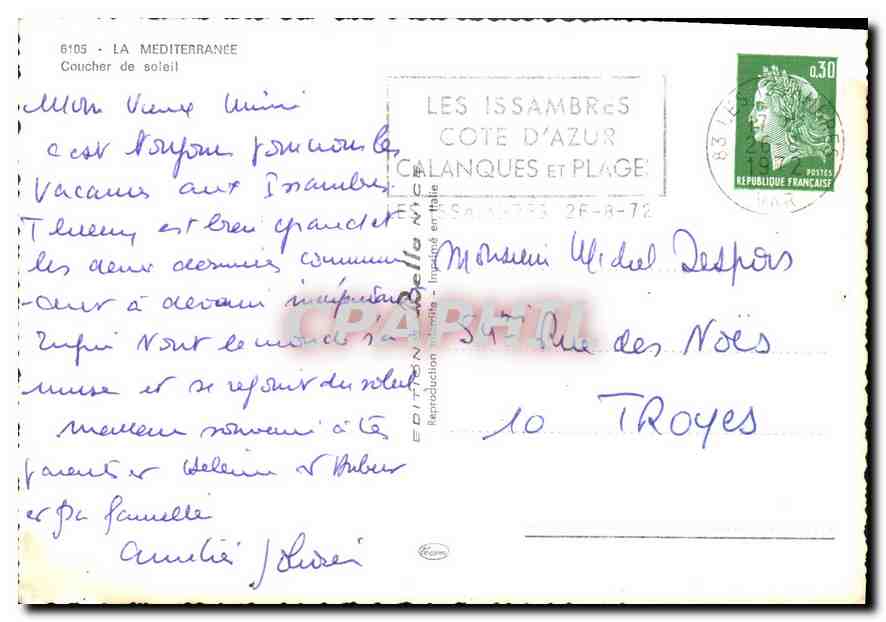 6105 - LA MEDITERRANÉE
Coucher de soleil
Mon Vieux Mimi
c'est toujours pour nous les
Vacances aux Issambres.
Thierry est bien grand et
les deux dernières commen
-cent à devenir
Enfin tout le monde s'a
muse et se réjouit du soleil
Meilleur souvenir à tes
parents et Hélène et
et sa famille
Amitiés
EDITION Bella NICE
Reproduction interdite - Imprimé en Italie
LES ISSAMBRES
COTE D'AZUR
CALANQUES ET PLAGES
LES ISSAMBRES 26-8-72
83 LES ISSAMBRES
17
26
1972
VAR
0,30
POSTES
REPUBLIQUE FRANÇAISE
Monsieur Michel Despois
Rue des Noës
10 TROYES
CPAPHIL